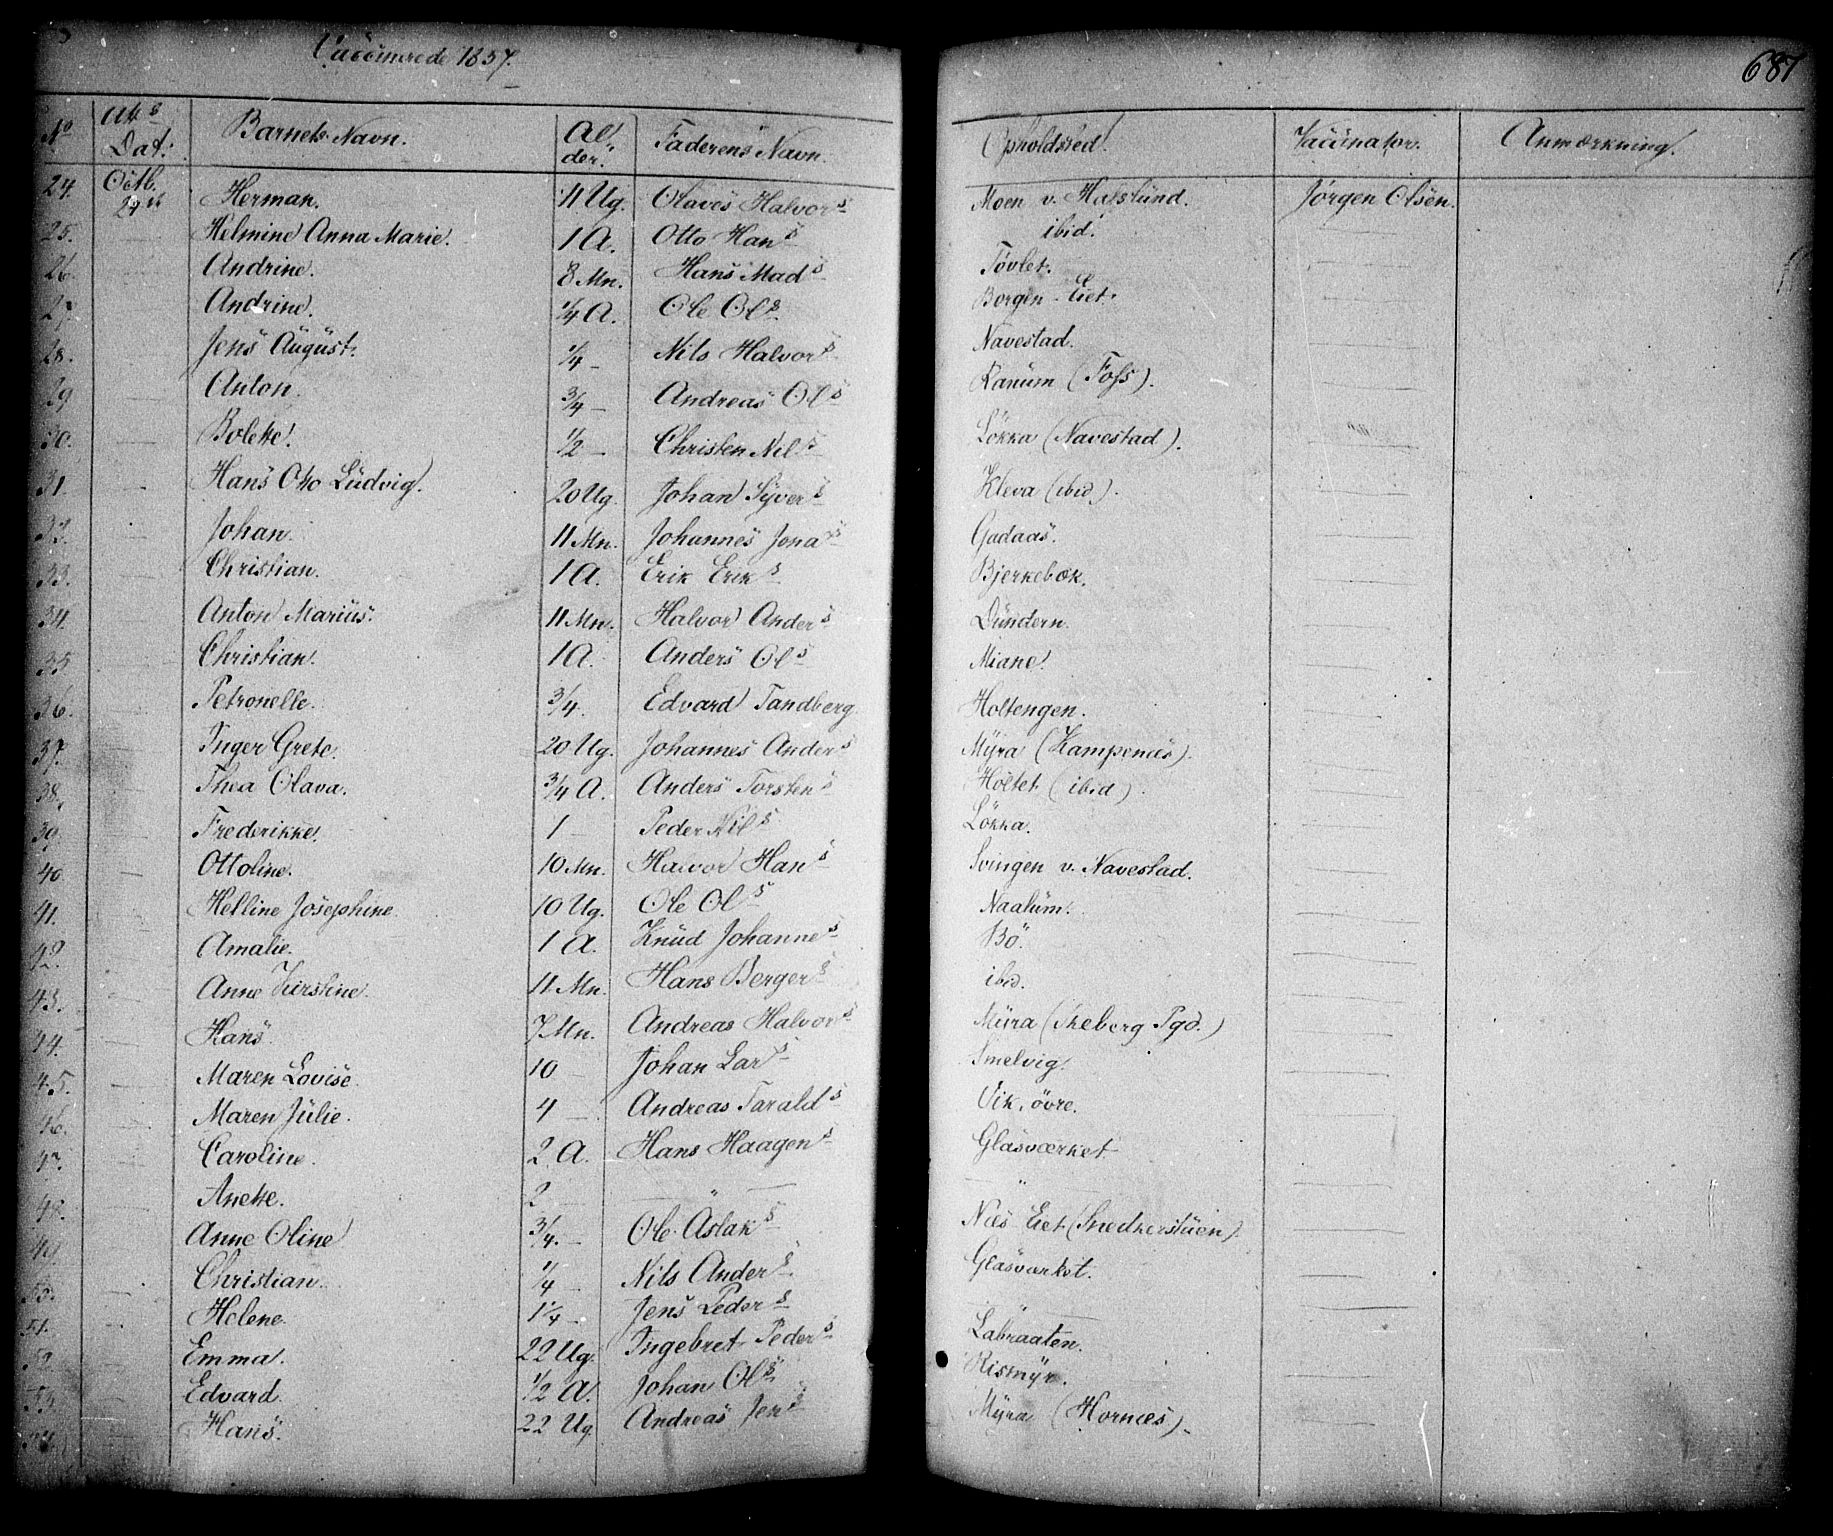 Vaccinerede 1857.
687
No Aks Dat: Barnets Navn. Alder. Faderens Navn. Opholdssted. Vaccinator. Anmærkning.
24. Octb. 24de Herman. 11 Ug. Olaves Halvors Moen v. Hafslund. Jørgen Olsen.
25. Helmine Anna Marie. 1 A. Otto Hans ibid.
26. Andrine. 8 Mn. Hans Mads Tövlet.
27. Andrine. 1/4 A. Ole Ols Borgen-Eiet.
28. Jens August. 1/4 — Nils Halvors Navestad.
29 Anton. 3/4 — Andreas Ols Ranum (Foss).
30. Bolette. 1/2 — Christen Nils Lökka (Navestad).
31. Hans Otto Ludvig. 20 Ug. Johan Syvers Kleva (ibid).
32. Johan. 11 Mn. Johannes Jonas Gadaas.
33. Christian. 1 A. Erik Eriks Bjerkebæk.
34. Anton Marius. 11 Mn. Halvor Anders Dundern.
35 Christian. 1 A. Anders Ols Miane.
36. Petronelle. 3/4. Edvard Tandberg Holtengen.
37. Inger Grete. 20 Ug. Johannes Anders Myra (Kampenæs).
38. Thea Olava. 3/4 A. Anders Torstens Holtet (ibid).
39. Frederikke. 1 — Peder Nils Lökka.
40 Ottoline. 10 Mn. Halvor Hans Svingen v. Navestad.
41. Helline Josephine. 10 Ug. Ole Ols Naalum.
42. Amalie. 1 A. Knud Johannes Bö.
43. Anne Kirstine. 11 Mn. Hans Bergers ibid.
44. Hans. 7 Mn. Andreas Halvors Myra (Skeberg Pgd.)
45. Maren Lovise. 10 — Johan Lars Smelvig.
46. Maren Julie. 4 — Andreas Taralds Vik, övre.
47. Caroline. 2 A. Hans Haagens Glasværket
48. Anette. 2 — — " — — " —
49. Anne Oline 3/4. — Ole Aslaks Næs Eiet (Snedkerstuen).
50. Christian. 1/4 — Nils Anders Glasværket.
51. Helene. 1 1/4 — Jens Peders
52. Emma. 22 Ug. Ingebret Peders Labraaten.
53. Edvard. 1/2 A. Johan Ols Rismyr.
54. Hans. 22 Ug. Andreas Jens Myra (Hornæs).